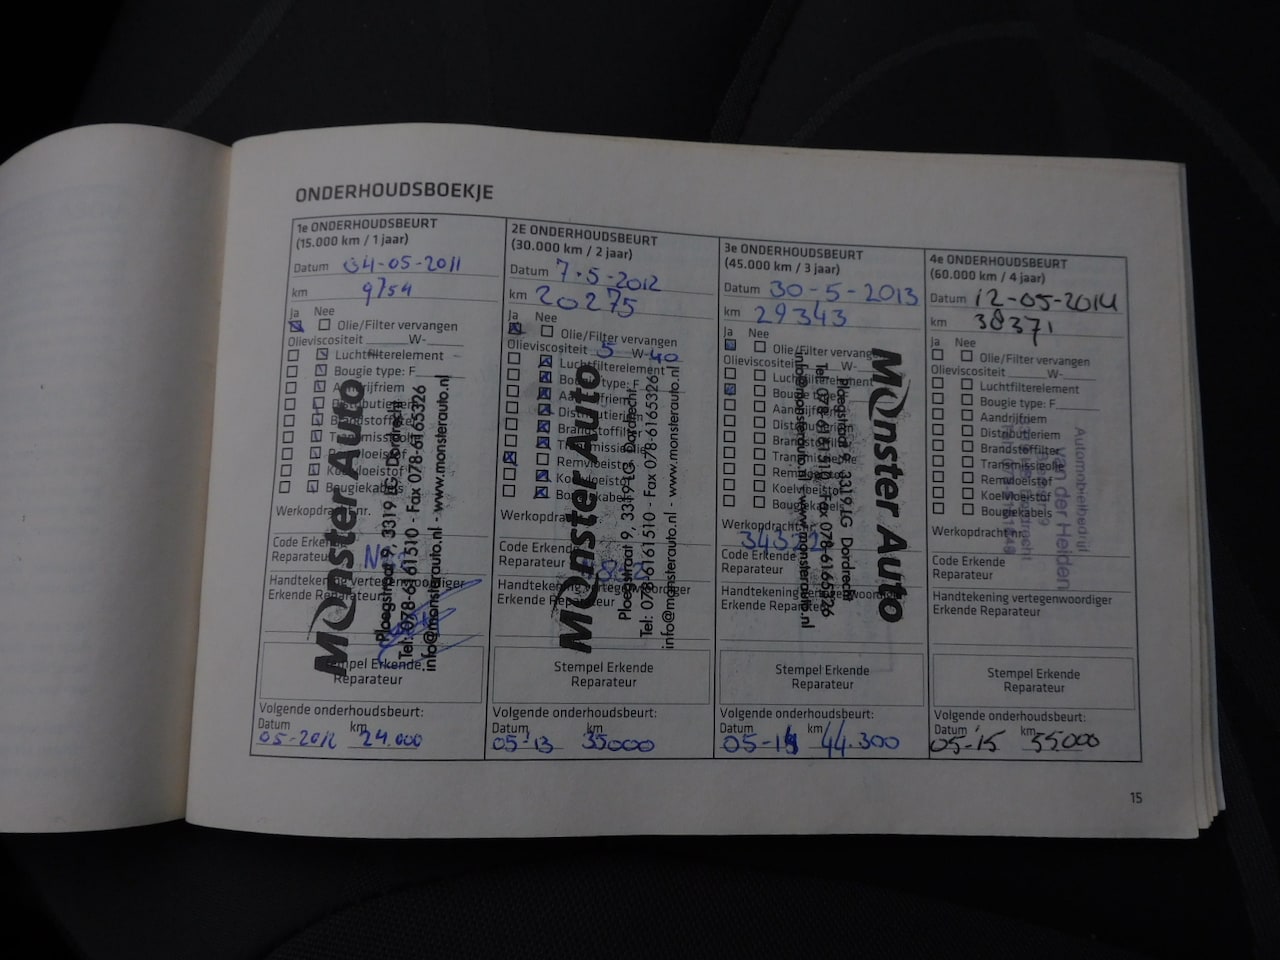 ONDERHOUDSBOEKJE
1e ONDERHOUDSBEURT
(15.000 km / 1 jaar)
Datum 04-05-2011
km 9754
Ja Nee
Olie/Filter vervangen
Olieviscositeit W-
Luchtfilterelement
Bougie type: F
Aandrijfriem
Distributieriem
Brandstoffilter
Transmissieolie
Remvloeistof
Koelvloeistof
Bougiekabels
Werkopdracht nr.
Code Erkende
Reparateur
Handtekening vertegenwoordiger
Erkende Reparateur
Monster Auto
Ploegstraat 9, 3319 LG Dordrecht
Tel: 078-6161510 - Fax 078-6165326
info@monsterauto.nl - www.monsterauto.nl
Stempel Erkende
Reparateur
Volgende onderhoudsbeurt:
Datum km
05-2012 24.000
2E ONDERHOUDSBEURT
(30.000 km / 2 jaar)
Datum 7-5-2012
km 20275
Ja Nee
Olie/Filter vervangen
Olieviscositeit 5 W-40
Luchtfilterelement
Bougie type: F
Aandrijfriem
Distributieriem
Brandstoffilter
Transmissieolie
Remvloeistof
Koelvloeistof
Bougiekabels
Werkopdracht
Code Erkende
Reparateur
Handtekening vertegenwoordiger
Erkende Reparateur
Monster Auto
Ploegstraat 9, 3319 LG Dordrecht
Tel: 078-6161510 - Fax 078-6165326
info@monsterauto.nl - www.monsterauto.nl
Stempel Erkende
Reparateur
Volgende onderhoudsbeurt:
Datum km
05-13 35000
3e ONDERHOUDSBEURT
(45.000 km / 3 jaar)
Datum 30-5-2013
km 29343
Ja Nee
Olie/Filter vervangen
Olieviscositeit W-
Luchtfilterelement
Bougie type: F
Aandrijfriem
Distributieriem
Brandstoffilter
Transmissieolie
Remvloeistof
Koelvloeistof
Bougiekabels
Werkopdracht nr.
34322
Code Erkende
Reparateur
Handtekening vertegenwoordiger
Erkende Reparateur
Monster Auto
Ploegstraat 9, 3319 LG Dordrecht
Tel: 078-6161510 - Fax 078-6165326
info@monsterauto.nl - www.monsterauto.nl
Stempel Erkende
Reparateur
Volgende onderhoudsbeurt:
Datum km
05-14 44.300
4e ONDERHOUDSBEURT
(60.000 km / 4 jaar)
Datum 12-05-2014
km 38371
Ja Nee
Olie/Filter vervangen
Olieviscositeit W-
Luchtfilterelement
Bougie type: F
Aandrijfriem
Distributieriem
Brandstoffilter
Transmissieolie
Remvloeistof
Koelvloeistof
Bougiekabels
Werkopdracht nr.
Code Erkende
Reparateur
Handtekening vertegenwoordiger
Erkende Reparateur
Automobielbedrijf
van der Heiden
Stempel Erkende
Reparateur
Volgende onderhoudsbeurt:
Datum km
05-15 55000
15